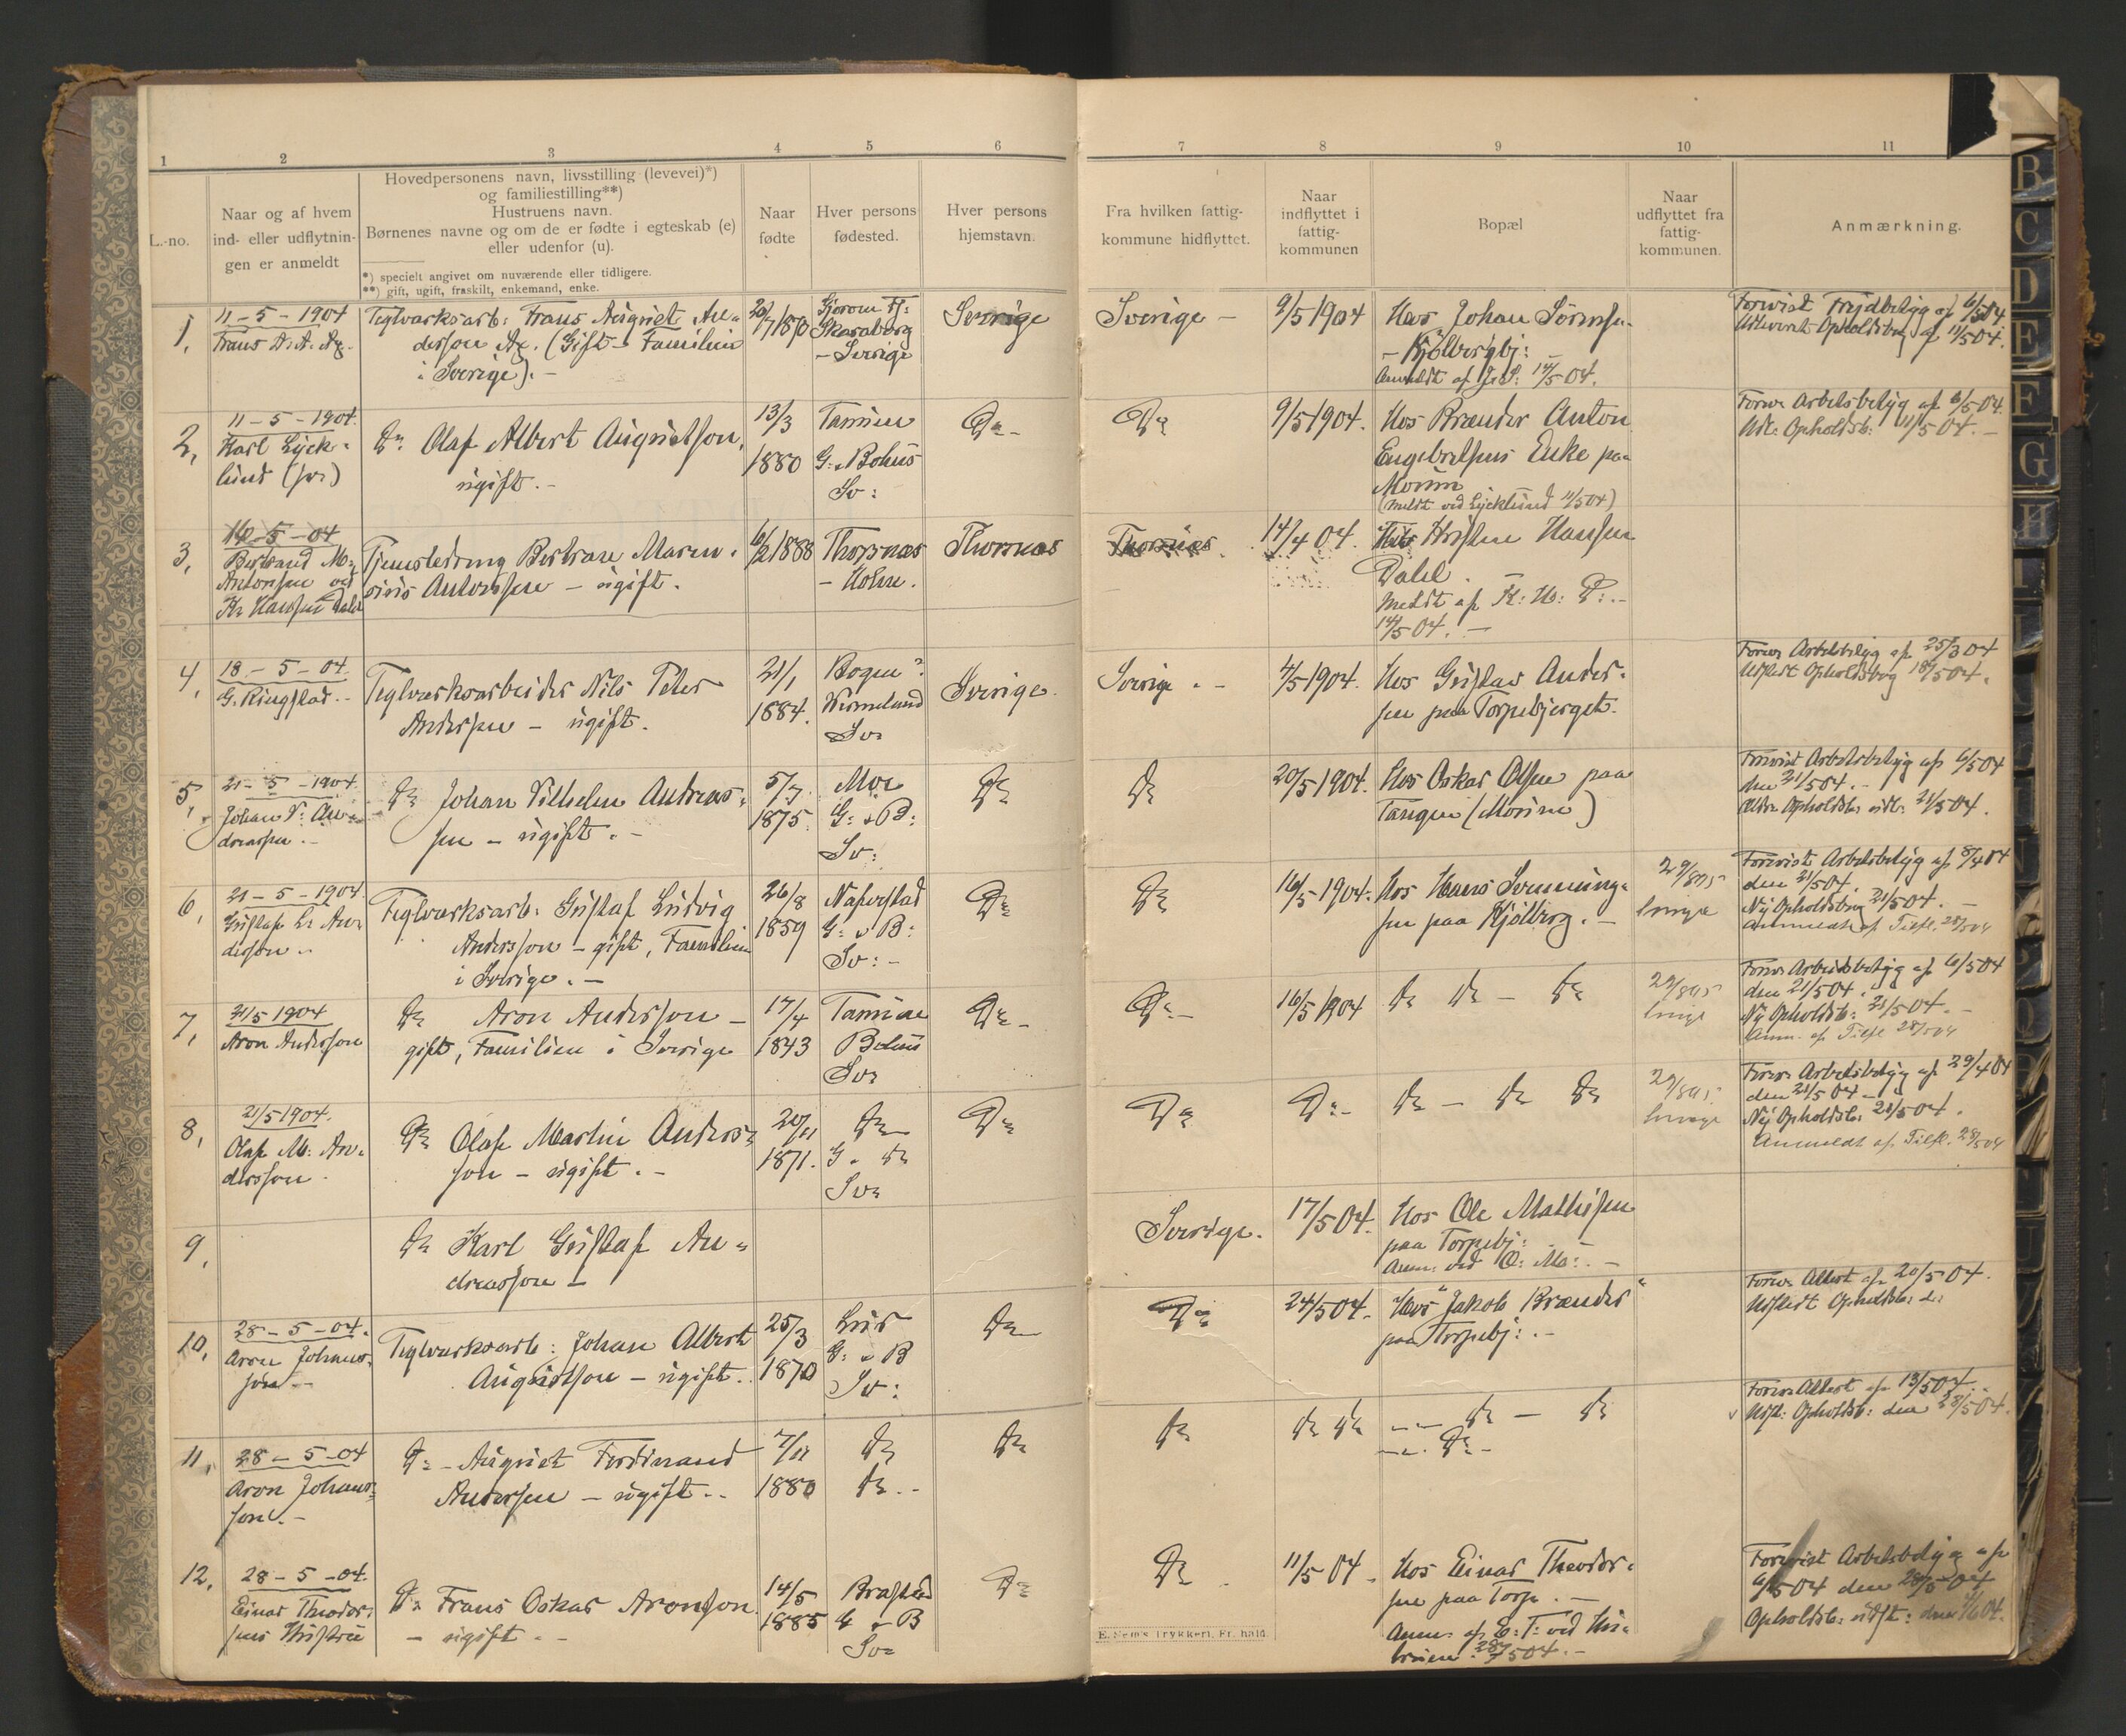 1 2 3 4 5 6
L.-no.
Naar og af hvem
ind- eller udflytnin-
gen er anmeldt
Hovedpersonens navn, livsstilling (levevei)*)
og familiestilling**)
Hustruens navn.
Børnenes navne og om de er fødte i egteskab (e)
eller udenfor (u).
*) specielt angivet om nuværende eller tidligere.
**) gift, ugift, fraskilt, enkemand, enke.
Naar
fødte
Hver persons
fødested.
Hver persons
hjemstavn.
7 8 9 10 11
Fra hvilken fattig-
kommune hidflyttet.
Naar
indflyttet i
fattig-
kommunen
Bopæl
Naar
udflyttet fra
fattig-
kommunen.
Anmærkning.
1,
11-5-1904
Frans A. A.
Teglværksarb: Frans August An-
dersson (Gift - Familien
i Sverige). -
20/7 1870
Skaraborg
- Sverige
Sverige
Sverige -
9/5 1904
Hos Johan Sörensen
- Kjölbergbj:
Anmeldt af J. S: 14/5 04.
Forevist Frejdbetyg af 6/5 04
Opholdsbog af 11/5 04.
2,
11-5-1904.
Karl Lyck-
lund (sv.)
Do Olaf Albert Augustson,
ugift. -
13/3
1880
Tanum
G. o Bohus
Sv:
Do -
Do
9/5 1904.
Hos Brænder Anton
Engebretsens Enke paa
Moum
(meldt ved Lycklund 11/5 04)
Forev. Arbetsbetyg af 6/5 04.
Udt. Opholdsb: 11/5 04. -
3,
14-5-04
Bertrand M.
Antonsen ved
Kr. Hansen Dahl
Tjenestedreng Bertran Marin-
ius Antonsen - ugift.
6/2 1888
Thorsnæs
- Holm.
Thorsnæs
Thorsnæs
14/4 04.
Hos Kristen Hansen
Dahl.
Meldt af K: H: D: -
14/5 04. -
4,
18-5-04.
G. Ringstad. -
Teglværksarbeider Nils Peter
Andersen - ugift.
21/1
1884.
Bogen?
Wermeland
Sv.
Sverige.
Sverige. -
4/5 1904.
Hos Gustav Ander-
sen paa Torpebjerget.
Forev. Arbetsbetyg af 25/3 04
Udstedt Opholdsbog 18/5 04.
5,
21-5-1904.
Johan V: An-
dreassen. -
Do Johan Vilhelm Andreas-
sen - ugift. -
5/7
1875.
Moe
G: o B:
Sv:
Do
Do
20/5 1904.
Hos Oskar Olsen paa
Tangen (Moum)
Forevist Arbetsbetyg af 6/5 04
den 21/5 04. -
Opholdsb. udst: 21/5 04.
6,
21-5-1904
Gustaf L. An-
dersson. -
Teglværksarb: Gustaf Ludvig
Andersson - gift, Familien
i Sverige. -
26/8
1859
Naverstad
G: o B:
Sv: -
Do
Do
16/5 1904.
Hos Hans Svenning-
sen paa Kjölberg. -
Forevist Arbetsbetyg af 8/4 04
den 21/5 04.
Ny Opholdsbog 21/5 04. -
7,
21/5 1904
Aron Andersson
Do Aron Andersson -
gift, Familien i Sverige
17/4
1843
Tanum
Bohus
Sv.
Do -
Do -
16/5 1904
Do Do - Do
Forev. Arbeidsbetyg af 6/5 04
den 21/5 04.
Ny Opholdsb: 21/5 04. -
8,
21/5 1904.
Olaf M: An-
dersson.
Do Olaf Martin Anders-
son - ugift. -
20/11
1871.
Do
G. Do
Sv.
Do
Do
Do -
Do - Do Do
Forev. Arbetsbetyg af 29/4 04
den 21/5 04 -
Ny Opholdsb: 21/5 04.
9,
Do Karl Gustaf An-
dreasson -
Sverige.
17/5 04.
Hos Ole Mathisen
paa Torpebj:
Anm: ved O: M: -
10,
28-5-04.
Aron Johans-
son. -
Teglværksarb: Johan Albert
Augustson - ugift.
25/3
1870
Lur
G: o B
Sv:
Do
Do
24/5 04.
Hos "Jakob Brænder"
paa Torpebj: -
Forev. Attest af 20/5 04.
Udstedt Opholdsb: d:
11,
28-5-04
Aron Johans-
son. -
Do - August Ferdinand
Andersen - ugift. -
7/11
1880
Do
Do. -
Do
Do
Do Do
- Do - Do
- Do -
Forev. Attest af 13/5 04.
Udst: Opholdsb: den 28/5 04.
12,
28-5-04.
Einar Theodor-
sens Hustru
Do Frans Oskar Aronson
- ugift. -
14/5
1885
Brastad
G o B
Sv.
Do
Do
11/5 04.
Hos Einar Theodor-
sen paa Torp. -
Anm. af E: T: ved Hu-
struen 28/5 04. -
Forevist Arbetsbetyg af
6/5 04 den 28/5 04
Opholdsb: udst: den 1/6 04.
E. Sem's Trykkeri, Fr.hald.
B
C
D
E
F
G
H